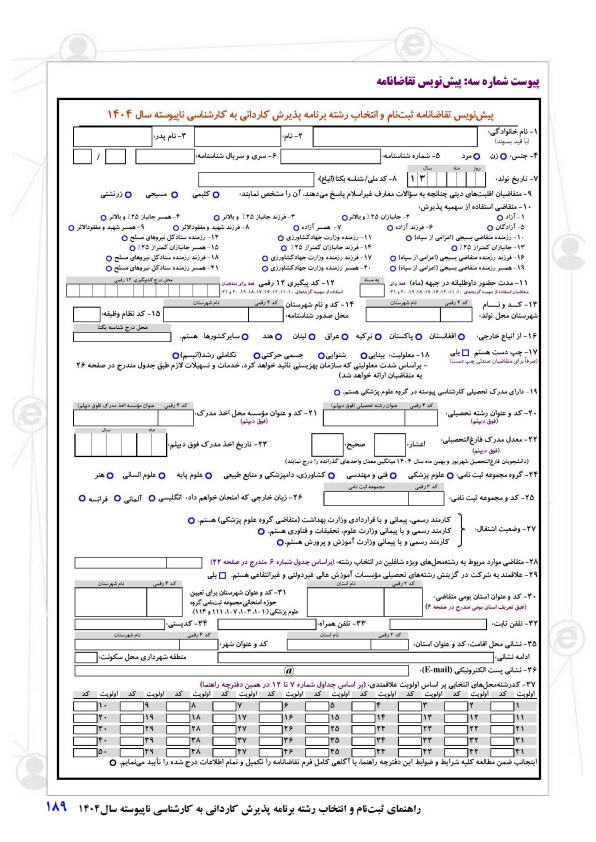 پیوست شماره سه: پیش‌نویس تقاضانامه
پیش‌نویس تقاضانامه ثبت‌نام و انتخاب رشته برنامه پذیرش کاردانی به کارشناسی ناپیوسته سال ۱۴۰۴
۱- نام خانوادگی: (با قید پسوند) ۲- نام: ۳- نام پدر:
۴- جنس: زن مرد ۵- شماره شناسنامه: ۶- سری و سریال شناسنامه: / /
روز ماه سال
۷- تاریخ تولد: ۱۳ ۸- کد ملی/ شناسه یکتا (اتباع):
۹- متقاضیان اقلیت‌های دینی چنانچه به سؤالات معارف غیراسلام پاسخ می‌دهند، آن را مشخص نمایند: کلیمی مسیحی زرتشتی
۱۰- متقاضی استفاده از سهمیه پذیرش:
۱- آزاد ۲- جانبازان ۲۵٪ و بالاتر ۳- فرزند جانباز ۲۵٪ و بالاتر ۴- همسر جانباز ۲۵٪ و بالاتر
۵- آزادگان ۶- فرزند آزاده ۷- همسر آزاده ۸- فرزند شهید و مفقودالاثر ۹- همسر شهید و مفقودالاثر
۱۰- رزمنده متقاضی بسیجی (اعزامی از سپاه) ۱۱- رزمنده وزارت جهادکشاورزی ۱۲- رزمنده ستادکل نیروهای مسلح
۱۳- جانبازان کمتر از ۲۵٪ ۱۴- فرزند جانبازان کمتراز ۲۵٪ ۱۵- همسر جانبازان کمتر از ۲۵٪
۱۶- فرزند رزمنده متقاضی بسیجی (اعزامی از سپاه) ۱۷- فرزند رزمنده وزارت جهادکشاورزی ۱۸- فرزند رزمنده ستادکل نیروهای مسلح
۱۹- همسر رزمنده متقاضی بسیجی (اعزامی از سپاه) ۲۰- همسر رزمنده وزارت جهادکشاورزی ۲۱- همسر رزمنده ستادکل نیروهای مسلح
۱۱- مدت حضور داوطلبانه در جبهه (ماه) به ماه ۱۲- کد پیگیری ۱۲ رقمی محل درج کدپیگیری ۱۲ رقمی
۱۳- کد و نام شهرستان محل تولد: کد ۴ رقمی نام شهرستان ۱۴- کد و نام شهرستان محل صدور شناسنامه: کد ۴ رقمی نام شهرستان ۱۵- کد نظام وظیفه:
۱۶- از اتباع خارجی: افغانستان پاکستان ترکیه عراق لبنان هند سایرکشورها هستم. محل درج شناسه یکتا
۱۷- چپ دست هستم بلی (صرفاً برای متقاضیان صندلی چپ دست) ۱۸- معلولیت: بینایی شنوایی جسمی حرکتی تکاملی رشد(اتیسم)
- براساس شدت معلولیتی که سازمان بهزیستی تائید خواهد کرد، خدمات و تسهیلات لازم طبق جدول مندرج در صفحه ۲۶ به متقاضیان ارائه خواهد شد)
۱۹- دارای مدرک تحصیلی کارشناسی پیوسته در گروه علوم پزشکی هستم.
۲۰- کد و عنوان رشته تحصیلی: (فوق دیپلم) کد ۴ رقمی عنوان رشته تحصیلی (فوق دیپلم) ۲۱- کد و عنوان مؤسسه محل اخذ مدرک: (فوق دیپلم) کد ۴ رقمی عنوان مؤسسه اخذ مدرک (فوق دیپلم)
۲۲- معدل مدرک فارغ‌التحصیلی: (فوق دیپلم) اعشار: صحیح: ۲۳- تاریخ اخذ مدرک فوق دیپلم: ماه سال
(دانشجویان فارغ‌التحصیل شهریور و بهمن ماه سال ۱۴۰۴ میانگین معدل واحدهای گذرانده را درج نمایند)
۲۴- گروه مجموعه ثبت نامی: علوم پزشکی فنی و مهندسی کشاورزی، دامپزشکی و منابع طبیعی علوم پایه علوم انسانی هنر
۲۵- کد و مجموعه ثبت نامی: کد ۳ رقمی مجموعه ثبت نامی ۲۶- زبان خارجی که امتحان خواهم داد: انگلیسی آلمانی فرانسه
۲۷- وضعیت اشتغال:
کارمند رسمی، پیمانی و یا قراردادی وزارت بهداشت (متقاضی گروه علوم پزشکی) هستم.
کارمند رسمی، و یا پیمانی وزارت علوم، تحقیقات و فناوری هستم.
کارمند رسمی و یا پیمانی وزارت آموزش و پرورش هستم.
۲۸- متقاضی موارد مربوط به رشته‌محل‌های ویژه شاغلین در انتخاب رشته: (براساس جدول شماره ۶ مندرج در صفحه ۲۲)
۲۹- علاقه‌مند به شرکت در گزینش رشته‌های تحصیلی مؤسسات آموزش عالی غیردولتی و غیرانتفاعی هستم. بلی
۳۰- کد و عنوان استان بومی متقاضی: (طبق تعریف استان بومی مندرج در صفحه ۴) کد ۲ رقمی نام استان ۳۱- کد و عنوان شهرستان برای تعیین حوزه امتحانی مجموعه ثبت‌نامی گروه علوم پزشکی (۱۰۱، ۱۰۳، ۱۰۷، ۱۱۱ و ۱۱۴): کد ۴ رقمی نام شهرستان
۳۲- تلفن ثابت: ۳۳- تلفن همراه: ۳۴- کدپستی:
۳۵- نشانی محل اقامت: کد و عنوان استان: کد ۲ رقمی نام استان کد و عنوان شهر: کد ۴ رقمی نام شهرستان
ادامه نشانی: منطقه شهرداری محل سکونت:
۳۶- نشانی پست الکترونیکی (E-mail): @
۳۷- کدرشته‌محل‌های انتخابی بر اساس اولویت علاقمندی: (بر اساس جداول شماره ۷ تا ۱۲ در همین دفترچه راهنما)
اولویت کد اولویت کد اولویت کد اولویت کد اولویت کد اولویت کد اولویت کد اولویت کد اولویت کد اولویت کد
۱ ۲ ۳ ۴ ۵ ۶ ۷ ۸ ۹ ۱۰
۱۱ ۱۲ ۱۳ ۱۴ ۱۵ ۱۶ ۱۷ ۱۸ ۱۹ ۲۰
۲۱ ۲۲ ۲۳ ۲۴ ۲۵ ۲۶ ۲۷ ۲۸ ۲۹ ۳۰
۳۱ ۳۲ ۳۳ ۳۴ ۳۵ ۳۶ ۳۷ ۳۸ ۳۹ ۴۰
۴۱ ۴۲ ۴۳ ۴۴ ۴۵ ۴۶ ۴۷ ۴۸ ۴۹ ۵۰
اینجانب ضمن مطالعه کلیه شرایط و ضوابط این دفترچه راهنما، با آگاهی کامل فرم تقاضانامه را تکمیل و تمام اطلاعات درج شده را تأیید می‌نمایم.
راهنمای ثبت‌نام و انتخاب رشته برنامه پذیرش کاردانی به کارشناسی ناپیوسته سال۱۴۰۴ ۱۸۹